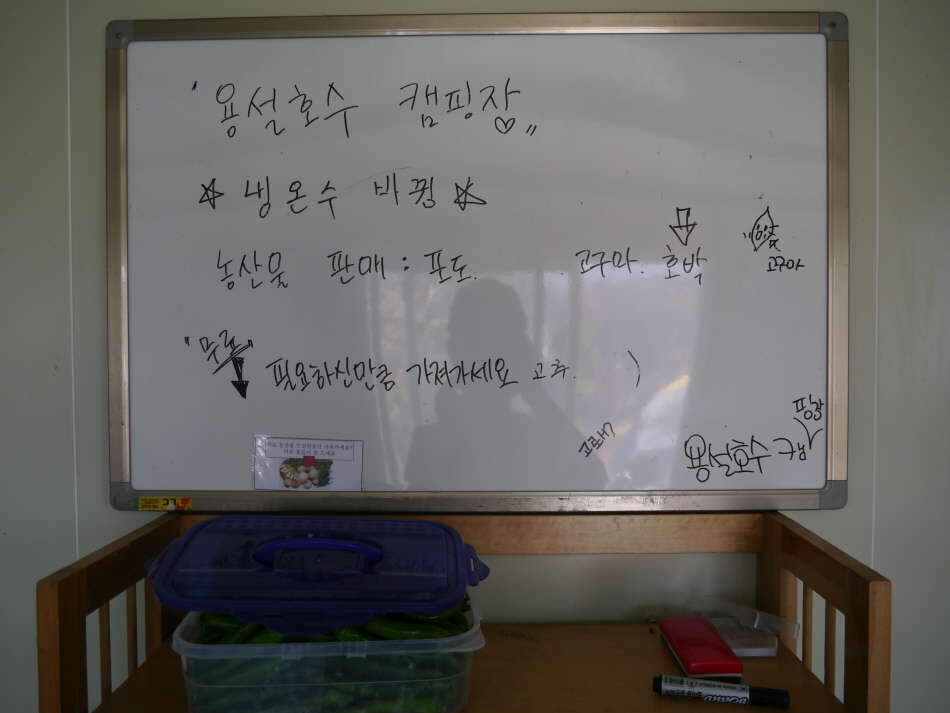 ' 용설호수 캠핑장 ♡ "
☆ 냉온수 바뀜 ☆
농산물 판매 : 포도. 고구마. 호박
고구마
" 무료 "
필요하신만큼 가져가세요 고추. )
용설호수 캠
핑장